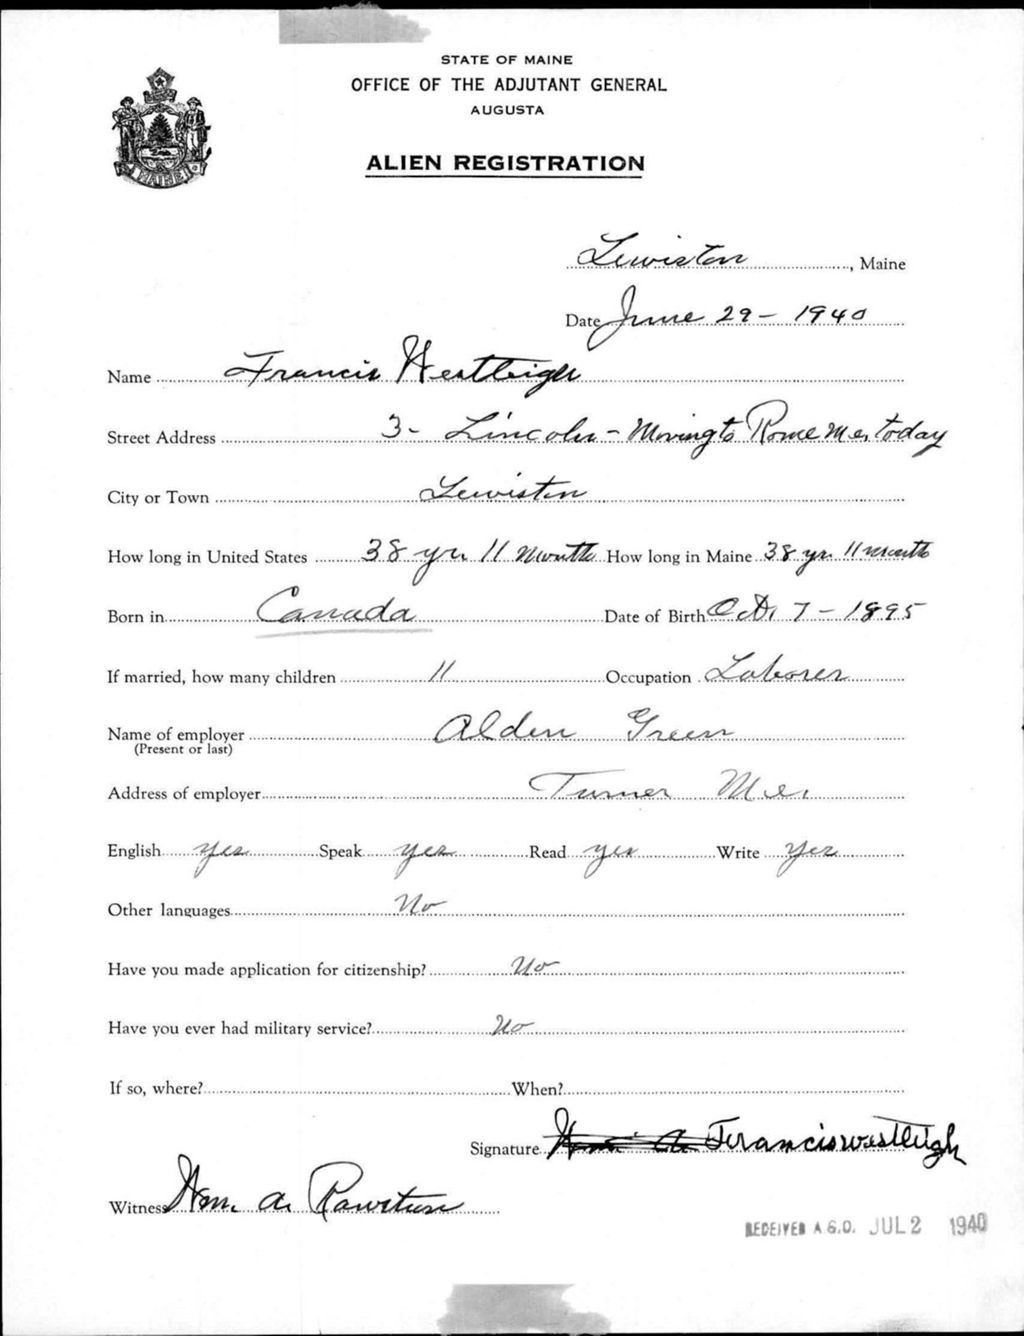 STATE OF MAINE
OFFICE OF THE ADJUTANT GENERAL
AUGUSTA
ALIEN REGISTRATION
MAINE
Lewiston, Maine
Date June 29 - 1940
Name Francis Westleigh
Street Address 3 - Lincoln - Moving to Rome Me, today
City or Town Lewiston
How long in United States 38 yrs 11 months How long in Maine 38 yrs 11 months
Born in Canada Date of Birth Oct, 7 - 1895
If married, how many children 11 Occupation Laborer
Name of employer Alden Green
(Present or last)
Address of employer Turner Me,
English yes Speak yes Read yes Write yes
Other languages No
Have you made application for citizenship? No
Have you ever had military service? No
If so, where? When?
Signature Francis westleigh
Witness Wm. A.
RECEIVED A.G.O. JUL 2 1940